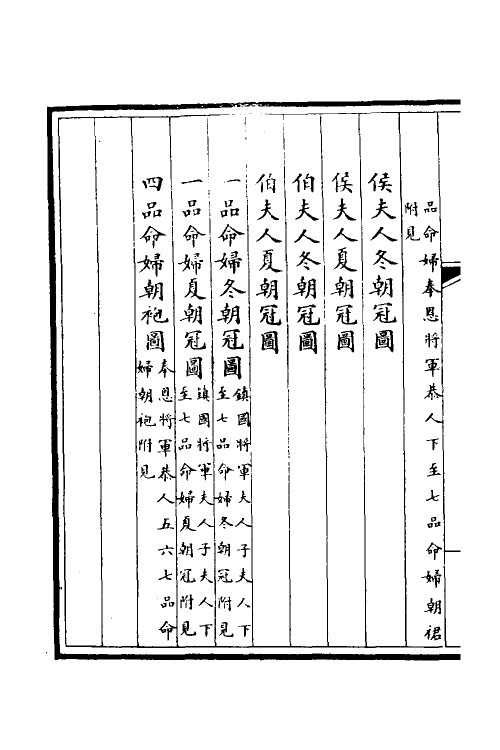 品命婦奉恩將軍恭人下至七品命婦朝裙
附見
侯夫人冬朝冠圖
侯夫人夏朝冠圖
伯夫人冬朝冠圖
伯夫人夏朝冠圖
一品命婦冬朝冠圖鎮國將軍夫人子夫人下
至七品命婦冬朝冠附見
一品命婦夏朝冠圖鎮國將軍夫人子夫人下
至七品命婦夏朝冠附見
四品命婦朝袍圖奉恩將軍恭人五六七品命
婦朝袍附見